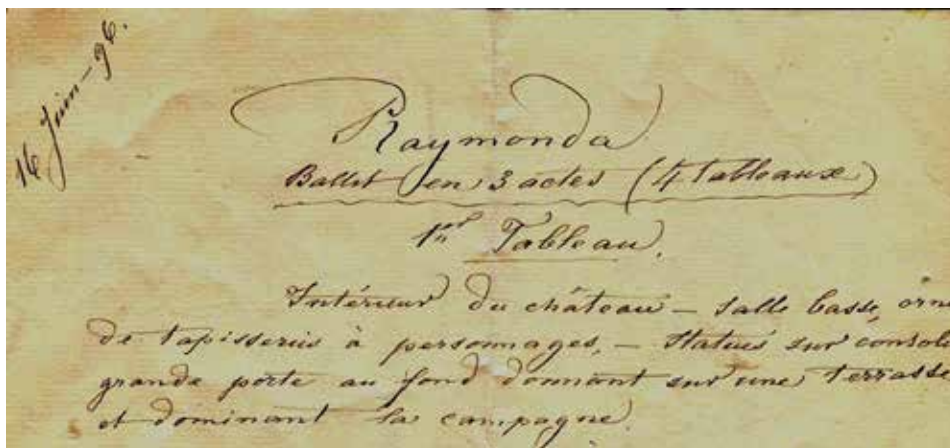 16 Juin - 96.
Raymonda
Ballet en 3 actes (4 tableaux)
1er Tableau.
Intérieur du château - salle basse, orné
de tapisseries à personnages, - statues sur console
grande porte au fond donnant sur une terrasse
et dominant la campagne.